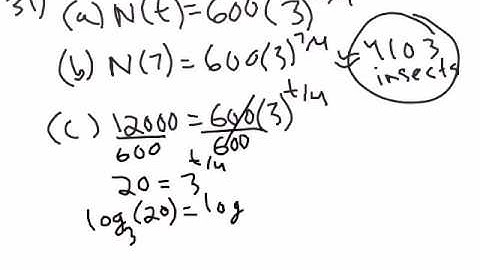 31) (a) N(t) = 600(3)^t/4
(b) N(7) = 600(3)^7/4 ≈ 4103 insects
(c) 12000/600 = 600(3)^t/4/600
20 = 3^t/4
log₃(20) = log